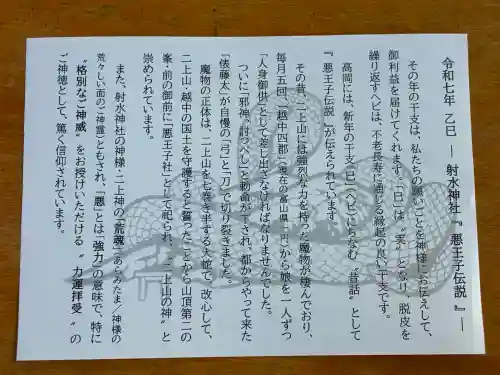 令和七年 乙巳 ― 射水神社『悪王子伝説』―
その年の干支は、私たちの願いごとを神様にお伝えして、
御利益を届けてくれます。「巳」は〝実〟となり、脱皮を
繰り返すヘビは、不老長寿に通じる縁起の良い干支です。
高岡には、新年の干支「巳」（ヘビ）にちなむ〝昔話〟として
『悪王子伝説』が伝えられています。
その昔、二上山には強烈な力を持った魔物が棲んでおり、
毎月五回、「越中四郡」（現在の富山県一円）から娘を一人ずつ
「人身御供」として差し出さなければなりませんでした。
ついに「邪神 討つべし」と勅命が下され、都からやって来た
「俵藤太」が自慢の「弓」と「刀」で切り裂きました。
魔物の正体は、二上山を七巻き半する大蛇で、改心して、
二上山・越中の国土を守護すると誓ったことから山頂第二の
峯・前の御前に「悪王子社」として祀られ、〝二上山の神〟と
崇められています。
また、射水神社の神様・二上神の「荒魂」（あらみたま／神様の
荒々しい面のご神霊）ともされ、「悪」とは〝強力〟の意味で、特に
〝格別なご神威〟をお授けいただける〝力運拝受〟の
ご神徳として、篤く信仰されています。